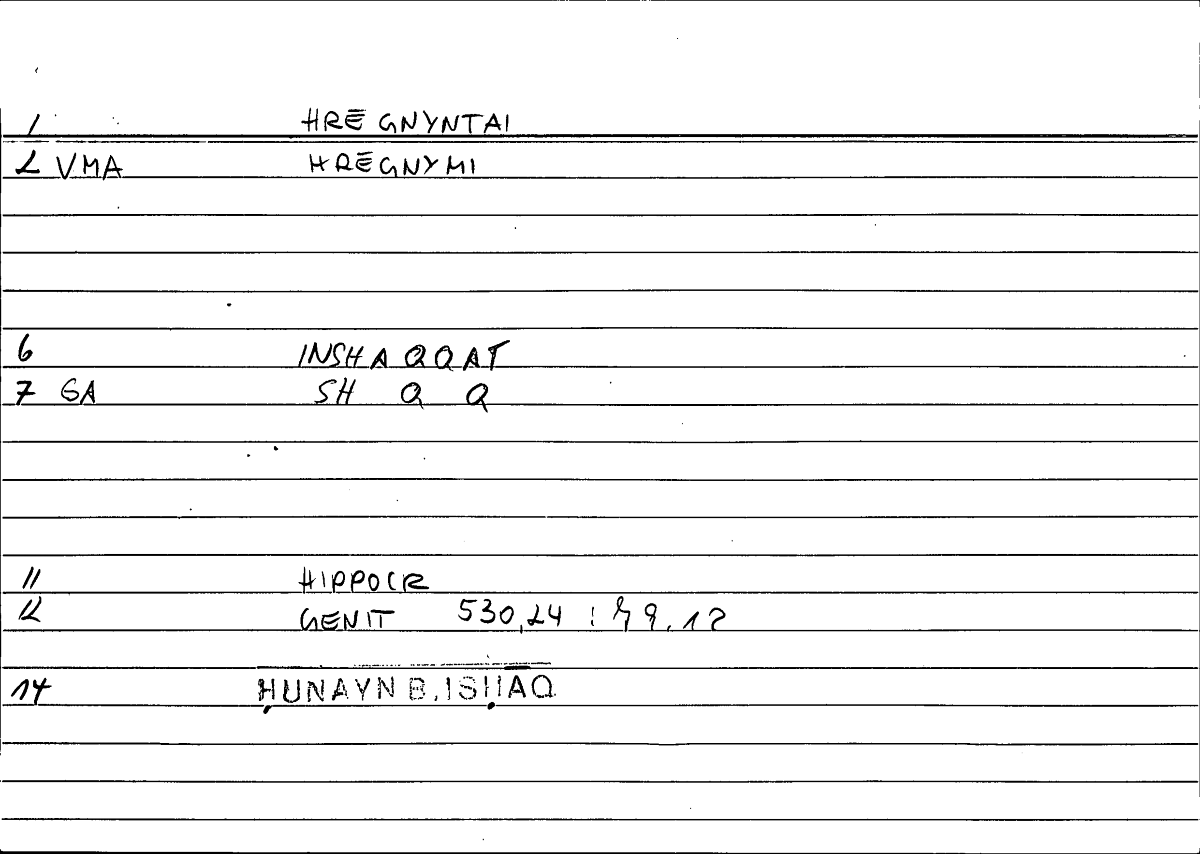 1 HRĒGNYNTAI
2 VMA HRĒGNYMI
6 INSHAQQAT
7 GA SH Q Q
11 HIPPOCR
12 GENIT 530,24 : 79,12
14 ḤUNAYN B. ISḤĀQ